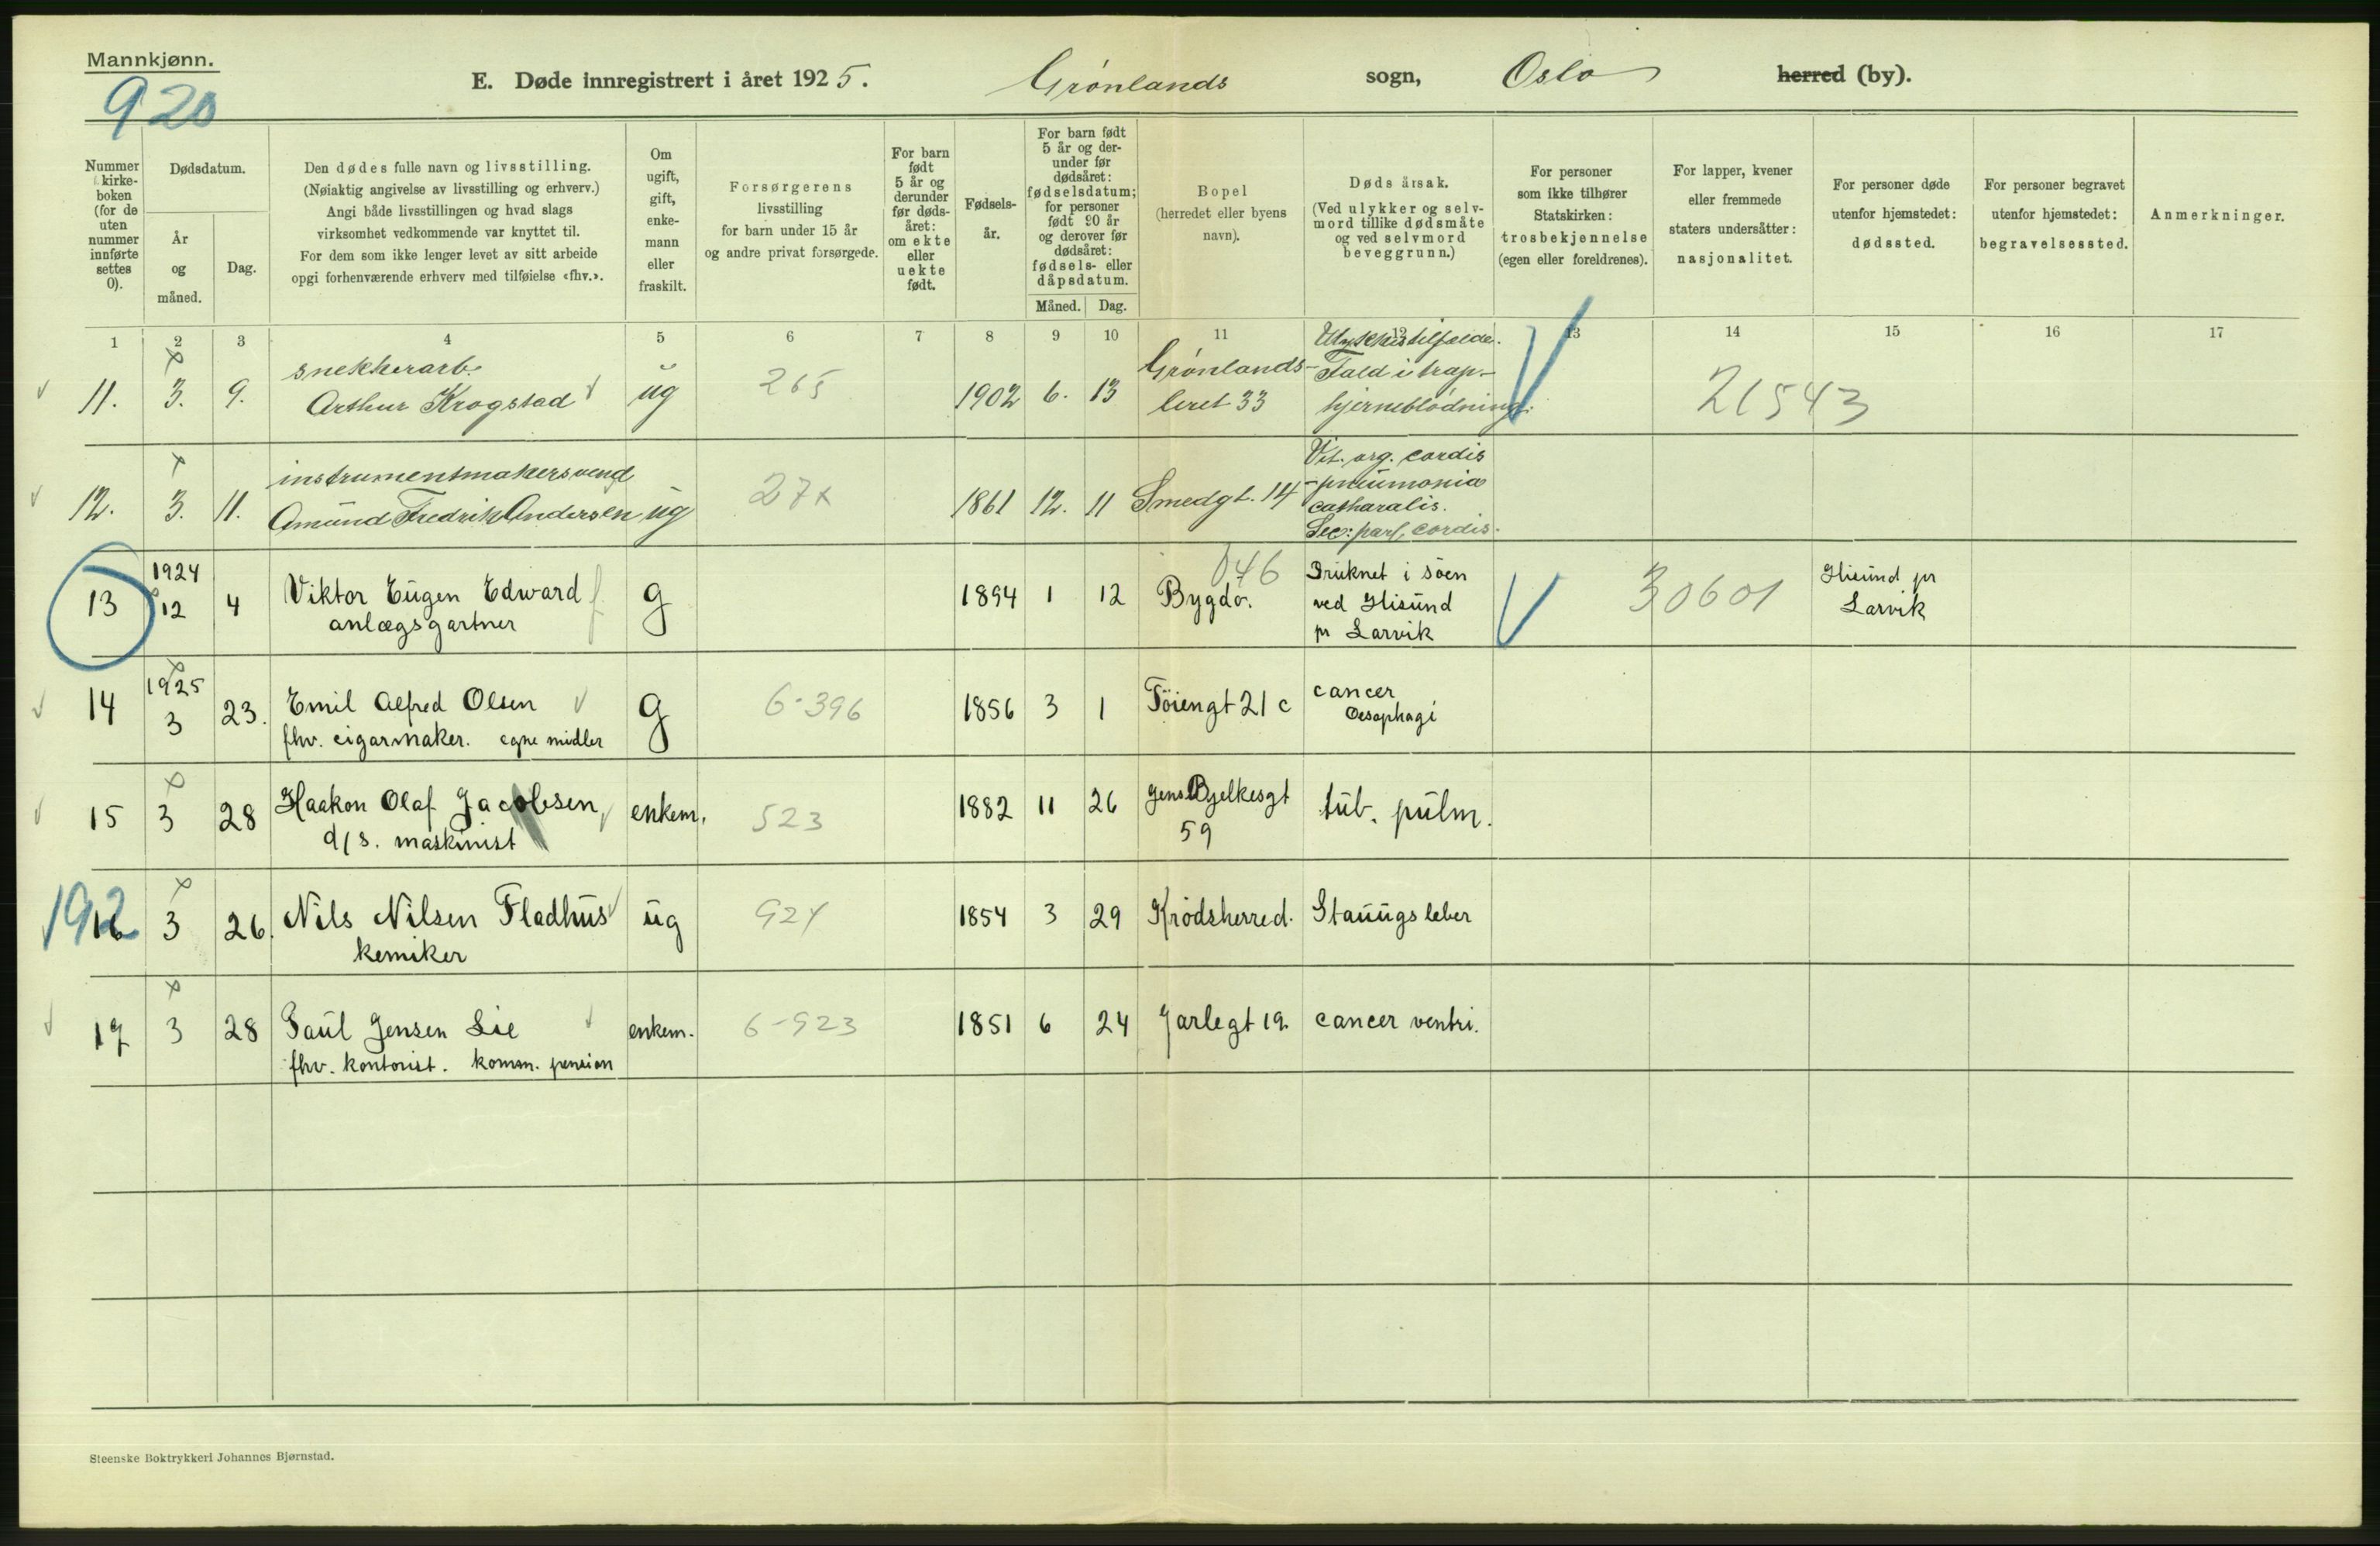 Mannkjønn.
920
E. Døde innregistrert i året 1925. Grønlands sogn, Oslo herred (by).
Nummer i kirke-boken (for de uten nummer innførte settes 0).
Dødsdatum.
År og måned.
Dag.
Den dødes fulle navn og livsstilling.
(Nøiaktig angivelse av livsstilling og erhverv.)
Angi både livsstillingen og hvad slags
virksomhet vedkommende var knyttet til.
For dem som ikke lenger levet av sitt arbeide
opgi forhenværende erhverv med tilføielse «fhv.».
Om ugift, gift, enke-mann eller fraskilt.
Forsørgerens
livsstilling
for barn under 15 år
og andre privat forsørgede.
For barn født 5 år og derunder før døds-året: om ekte eller uekte født.
Fødsels-år.
For barn født 5 år og der-under før dødsåret: fødselsdatum; for personer født 90 år og derover før dødsåret: fødsels- eller dåpsdatum.
Måned. Dag.
Bopel
(herredet eller byens navn).
Dødsårsak.
(Ved ulykker og selv-mord tillike dødsmåte og ved selvmord beveggrunn.)
For personer som ikke tilhører Statskirken: trosbekjennelse (egen eller foreldrenes).
For lapper, kvener eller fremmede staters undersåtter: nasjonalitet.
For personer døde utenfor hjemstedet: dødssted.
For personer begravet utenfor hjemstedet: begravelsessted.
Anmerkninger.
1 2 3 4 5 6 7 8 9 10 11 12 13 14 15 16 17
snekkerarb. Ulykkestilfælde.
11. 3. 9. Arthur Krogstad ug 265 1902 6. 13 Grønlands-leret 33 Fald i trap.- hjerneblødning. 21543
instrumentmakersvend Vit. org. cordis
12. 3. 11. Amund Fredrik Andersen ug 27x 1861 12. 11 Smedgt. 14 - pneumonia catharalis.
Sec: parl. cordis.
13 1924 12 4 Viktor Eugen Edward g 1894 1 12 Bygdø. 046 Druknet i søen 30601 pr
anlægsgartner ved pr Larvik Larvik
14 1925 3 23. Emil Alfred Olsen g 6-396 1856 3 1 Töiengt 21 c cancer
fhv. cigarmaker. egne midler Oesophagi
15 3 28 Haakon Olaf Jacobsen enkem. 523 1882 11 26 Jens Bjelkesgt 59 tub. pulm.
d/s. maskinist
192
16 3 26. Nils Nilsen Fladhus ug 924 1854 3 29 Krødsherred. Stauungsleber
kemiker
17 3 28 Paul Jensen Lie enkem. 6-923 1851 6 24 Jarlegt 19. cancer ventri.
fhv. kontorist. komm. pension
Steenske Boktrykkeri Johannes Bjørnstad.